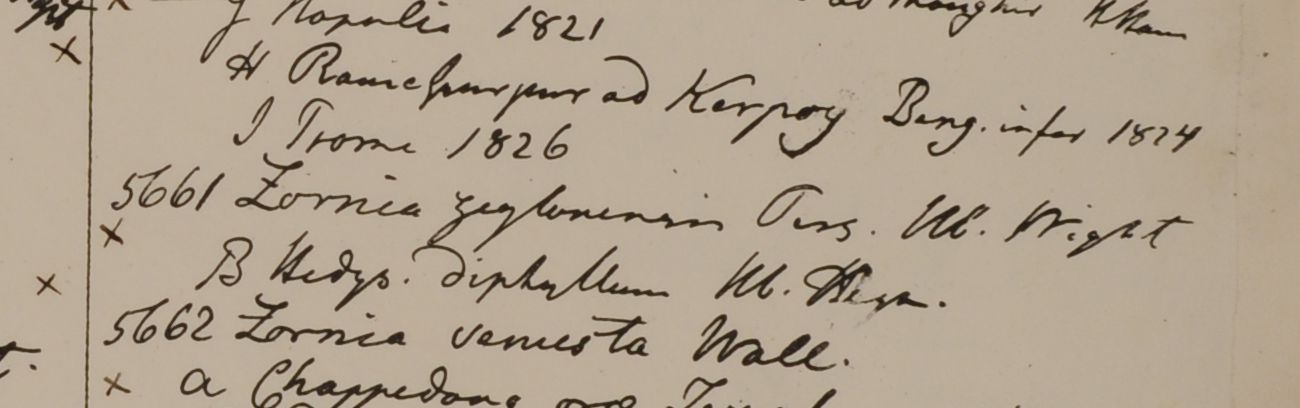 G Napalia 1821
H Ramchpurpur ad Kerpoy Beng. infer 1824
I Prome 1826
5661 Zornia zeylonensis Pers. Hb. Wight
B Hedys. diphyllum Hb. Heyn.
5662 Zornia venusta Wall.
a Chappedong